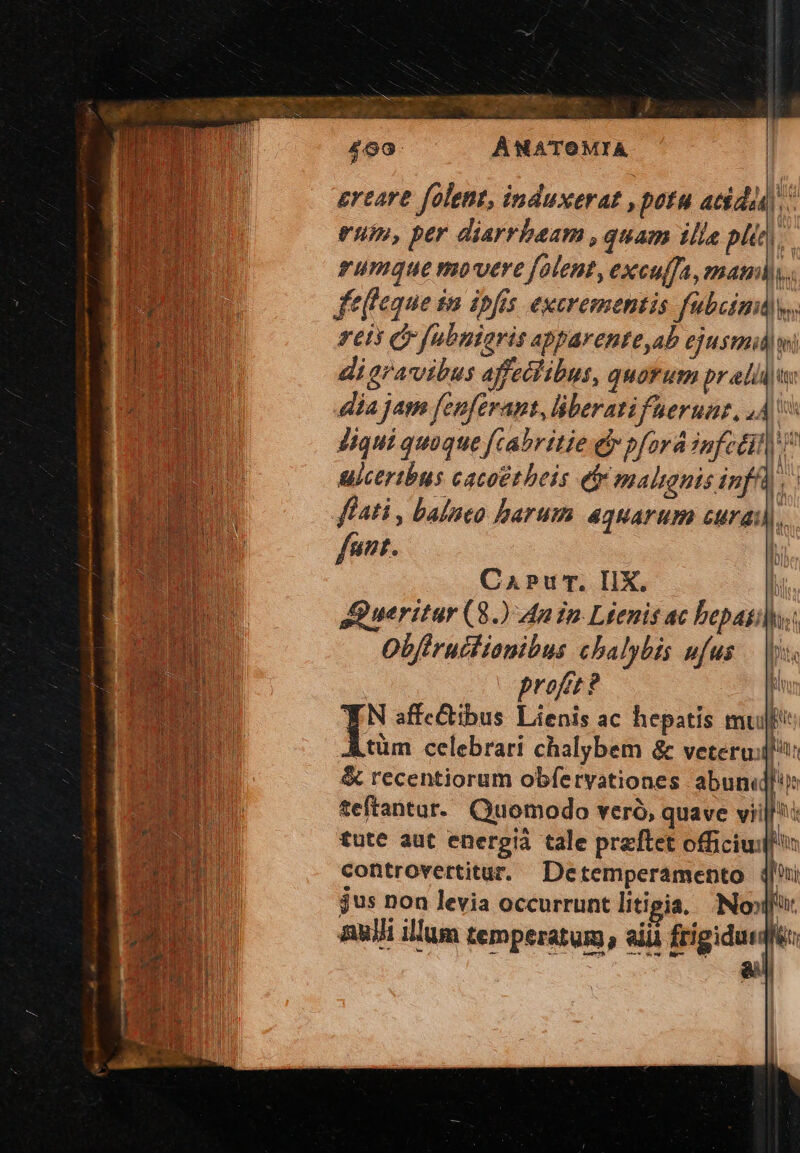 400 ANATOMIA
creare ſolent, induxerat, potu acidu
rum, per diarrhæam, quam illæ ple
rumque movere ſolent, excuſſa, mani
feſteque in ipſis excrementis ſubcine
reis & ſubnigris apparente, ab ejusmo
di gravibus affectibus, quorum prælu
dia jam ſenſerant, liberati fuerunt. A
liqui quoque ſcabritie & pſorâ infecti
ulceribus cacoëtheis & malignis inf
ſtati, balneo harum aquarum cura
ſunt.
CAPUT. IIX.
Quæritur (8.) An in Lienis ac hepatis
Obſtructionibus chalybis uſus
proſit?
IN affectibus Lienis ac hepatis mul
tùm celebrari chalybem & veteru
& recentiorum obſervationes abun
teſtantur. Quomodo verò, quave vi
tute aut energiâ tale præſtet officiu
controvertitur. De temperamento
jus non levia occurrunt litigia. Non
nulli illum temperatum, alii frigidu